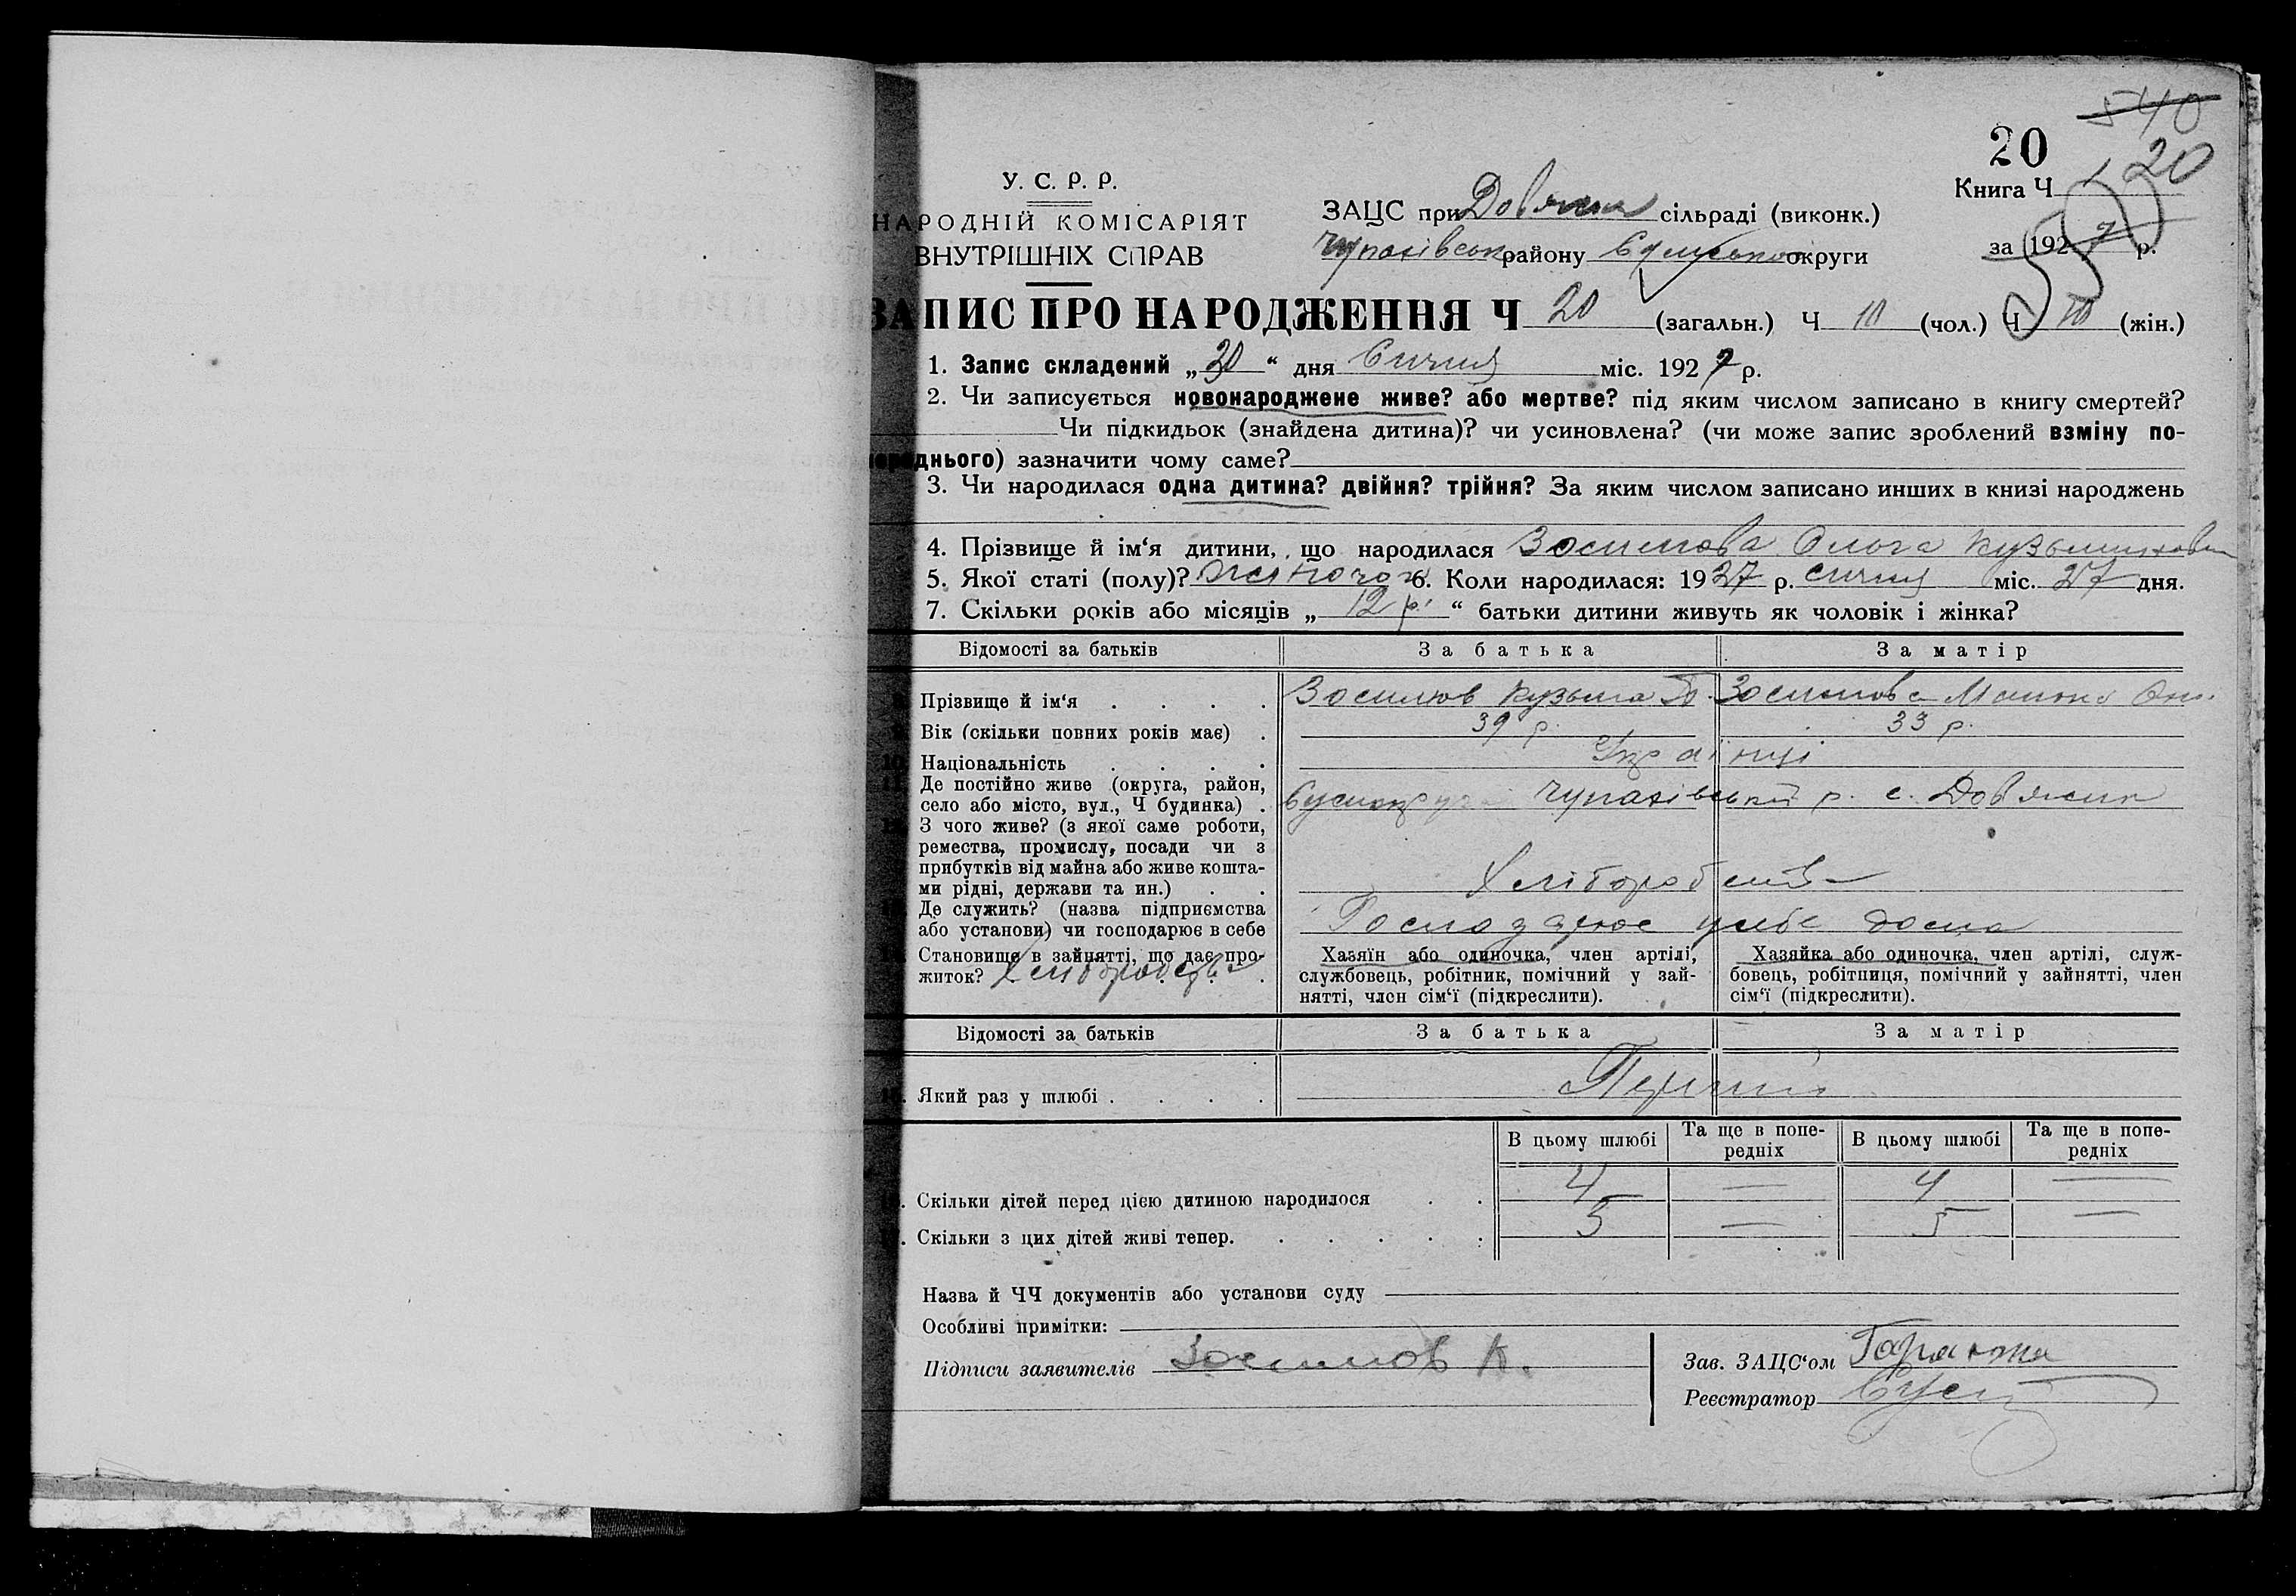 540
20
Книга Ч 1 20
У. С. Р. Р.
НАРОДНІЙ КОМІСАРІЯТ
ВНУТРІШНІХ СПРАВ
ЗАЦС при сільраді (виконк.)
Чупахівськ району округи
за 1927 р.
ЗАПИС ПРО НАРОДЖЕННЯ Ч 20 (загальн.) Ч 10 (чол.) Ч 10 (жін.)
1. Запис складений „30“ дня Січня міс. 1927 р.
2. Чи записується новонароджене живе? або мертве? під яким числом записано в книгу смертей?
Чи підкидьок (знайдена дитина)? чи усиновлена? (чи може запис зроблений взміну по-
переднього) зазначити чому саме?
3. Чи народилася одна дитина? двійня? трійня? За яким числом записано инших в книзі народжень
4. Прізвище й ім‘я дитини, що народилася Зосимова Ольга
5. Якої статі (полу)? жіночої 6. Коли народилася: 1927 р. січня міс. 27 дня.
7. Скільки років або місяців „12 р.“ батьки дитини живуть як чоловік і жінка?
Відомості за батьків За батька За матір
Прізвище й ім‘я Зосимов Кузьма Зосимова
Вік (скільки повних років має) 39 р. 33 р.
Національність Українці
11. Де постійно живе (округа, район,
село або місто, вул., Ч будинка) Чупахівський р. с.
З чого живе? (з якої саме роботи,
ремества, промислу, посади чи з
прибутків від майна або живе кошта-
ми рідні, держави та ин.) Хліборобства
Де служить? (назва підприємства
або установи) чи господарює в себе Господарює у себе дома
Становище в зайнятті, що дає про-
житок? Хліборобство
Хазяїн або одиночка, член артілі,
службовець, робітник, помічний у зай-
нятті, член сім‘ї (підкреслити).
Хазяйка або одиночка, член артілі, служ-
бовець, робітниця, помічний у зайнятті, член
сім‘ї (підкреслити).
Відомості за батьків За батька За матір
Який раз у шлюбі Перший
В цьому шлюбі Та ще в попе-
редніх В цьому шлюбі Та ще в попе-
редніх
Скільки дітей перед цією дитиною народилося 4 — 4 —
Скільки з цих дітей живі тепер. 5 — 5 —
Назва й ЧЧ документів або установи суду
Особливі примітки:
Підписи заявителів Зосимов К.
Зав. ЗАЦС‘ом
Реєстратор